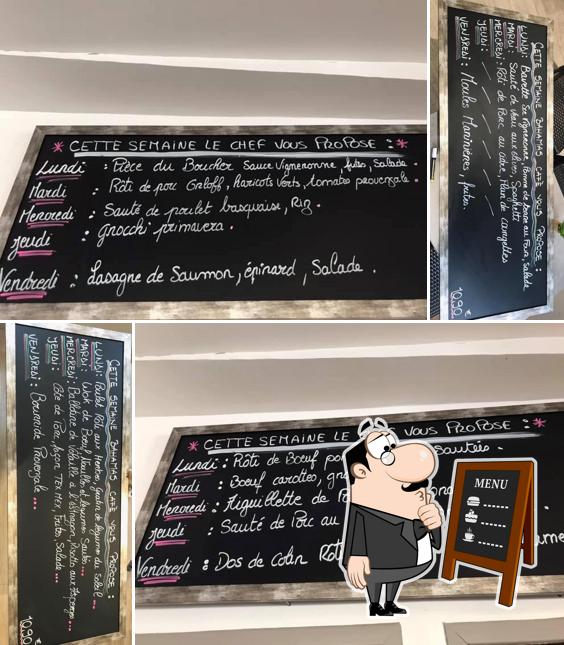 * CETTE SEMAINE LE CHEF VOUS PROPOSE : *
Lundi : Pièce du Boucher Sauce Vigneronne, frites, Salade.
Mardi : Rôti de porc Orloff, haricots verts, tomates provençale.
Mercredi : Sauté de poulet basquaise, Riz.
Jeudi : gnocchi primavera.
Vendredi : Lasagne de Saumon, épinard, Salade.
CETTE SEMAINE BAHAMAS CAFÉ VOUS PROPOSE :
LUNDI : Bavette Sce Vigneronne, Pomme de terre au Four, Salade
MARDI : Sauté de Veau aux olives, Spaghetti
MERCREDI : Rôti de Porc au cidre, Flan de courgettes
JEUDI :
VENDREDI : Moules Marinières, frites.
10,90 €
CETTE SEMAINE BAHAMAS CAFÉ VOUS PROPOSE :
LUNDI : Poulet Rôti aux Herbes, Gratin de légumes du Soleil...
MARDI : Wok de Boeuf, Nouilles et légumes Sautés...
MERCREDI : de Volaille à l'estragon, Risotto aux Asperges...
JEUDI : Côte de Porc façon TEX MEX, frites, Salade...
VENDREDI : Bourride Provençale...
10,90 €
* CETTE SEMAINE LE VOUS PROPOSE : *
Lundi : Rôti de Boeuf Sautées.
Mardi : Boeuf carottes,
Mercredi : Aiguillette de
Jeudi : Sauté de Porc au
Vendredi : Dos de Colin
MENU